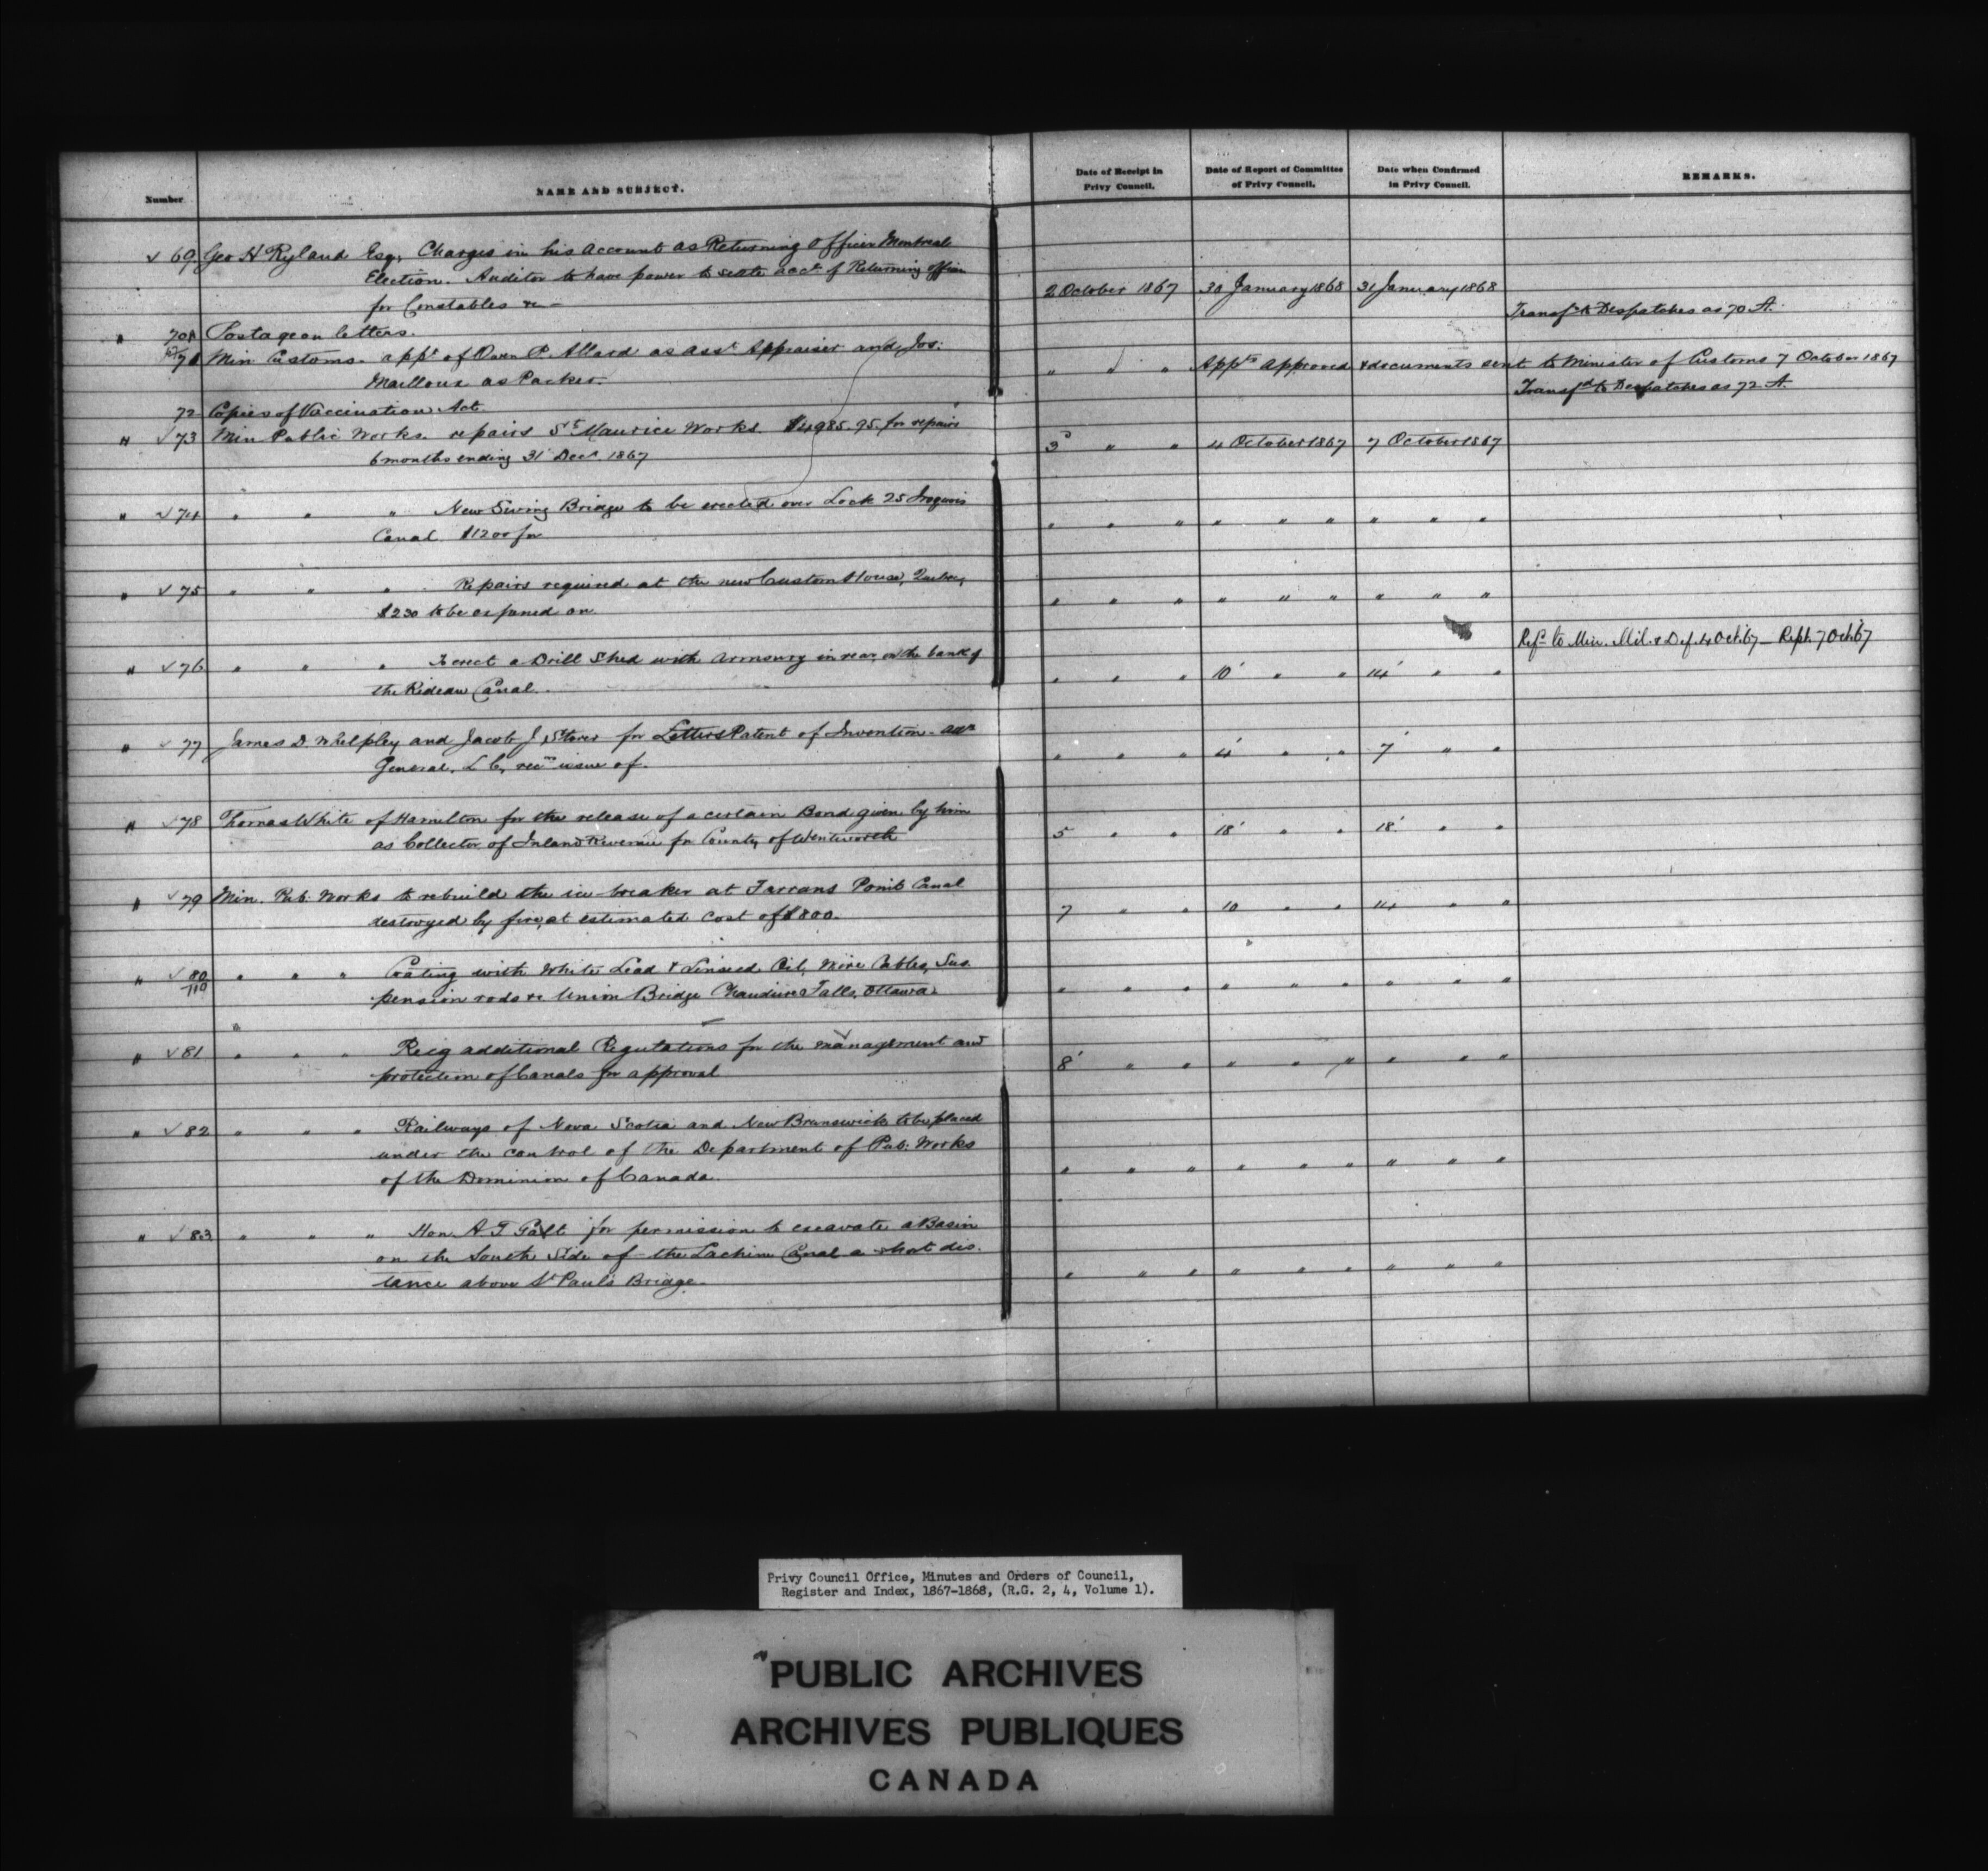 Number
NAME AND SUBJECT.
Date of Receipt in Privy Council.
Date of Report of Committee of Privy Council.
Date when Confirmed in Privy Council.
REMARKS.
√ 69 Geo H Ryland Esq, Charges in his account as Returning Officer Montreal
Election. Auditor to have power to settle acct of Returning officer
for Constables &c – 2 October 1867 30 January 1868 31 January 1868
" 70 Postage on letters. Transfd to Despatches as 70 A.
71 Min Customs. appt of Owen P. Allard as asst Appraiser and Jos:
Mailloux as Packer. " " " Appts Approved & documents sent to Minister of Customs 7 October 1867
72 Copies of Vaccination Act. Transfd to Despatches as 72 A.
" √ 73 Min Public Works. repairs St Maurice Works. $4985.95 for repairs
6 months ending 31 Decr. 1867 3d " " 4 October 1867 7 October 1867
" √ 74 " " " New Swing Bridge to be erected over Lock 25 Iroquois
Canal $1200 for " " " " " " " " "
" √ 75 " " " Repairs required at the new Custom House, Quebec,
$230 to be expened on " " " " " " " " "
" √ 76 " " " To erect a Drill Shed with armoury in rear, on the bank of
the Rideau Canal. " " " 10' " " 14' " "
Refd to Min. Mil. & Def. 4 Oct. 67 – Rept. 7 Oct. 67
" √ 77 James D. Whelpley and Jacob J. Storer for Letters Patent of Invention – atty
General, L C, recm issue of. " " " 4' " " 7' " "
" √ 78 Thomas White of Hamilton for the release of a certain Bond given by him
as Collector of Inland Revenue for County of Wentworth 5 " " 18' " " 18' " "
" √ 79 Min. Pub. Works to rebuild the ice breaker at Farrans Point Canal
destroyed by fire, at estimated cost of $800. 7 " " 10 " " 14 " "
" √ 80/110 " " " Coating with White Lead & Linseed Oil, Wire Cables, Sus
pension rods &c Union Bridge Chaudiere Falls, Ottawa. " " " " " " " " "
" √ 81 " " " Recig additional Regulations for the management and
protection of Canals for approval 8' " " " " " " " "
" √ 82 " " " Railways of Nova Scotia and New Brunswick to be placed
under the control of the Department of Pub. Works
of the Dominion of Canada. " " " " " " " " "
" √ 83 " " " Hon. A T Galt for permission to excavate a Basin
on the South Side of the Lachine Canal a short dis.
tance above St Paul's Bridge. " " " " " " " " "
Privy Council Office, Minutes and Orders of Council,
Register and Index, 1867-1868, (R.G. 2, 4, Volume 1).
PUBLIC ARCHIVES
ARCHIVES PUBLIQUES
CANADA